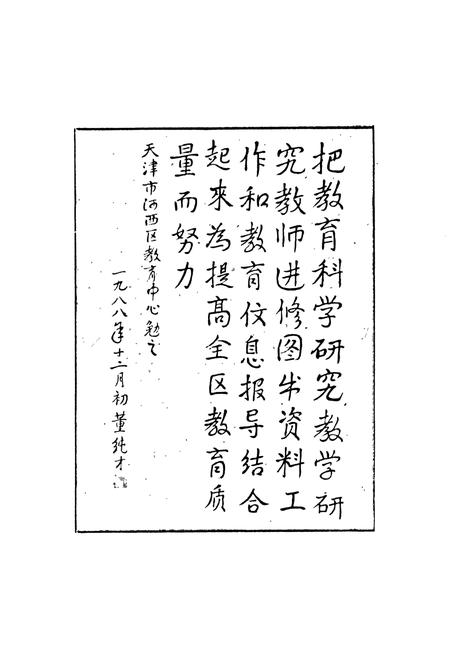 把教育科学研究教学研
究教师进修图书资料工
作和教育信息报导结合
起来为提高全区教育质
量而努力
天津市河西区教育中心勉之
一九八八年十二月初董纯才